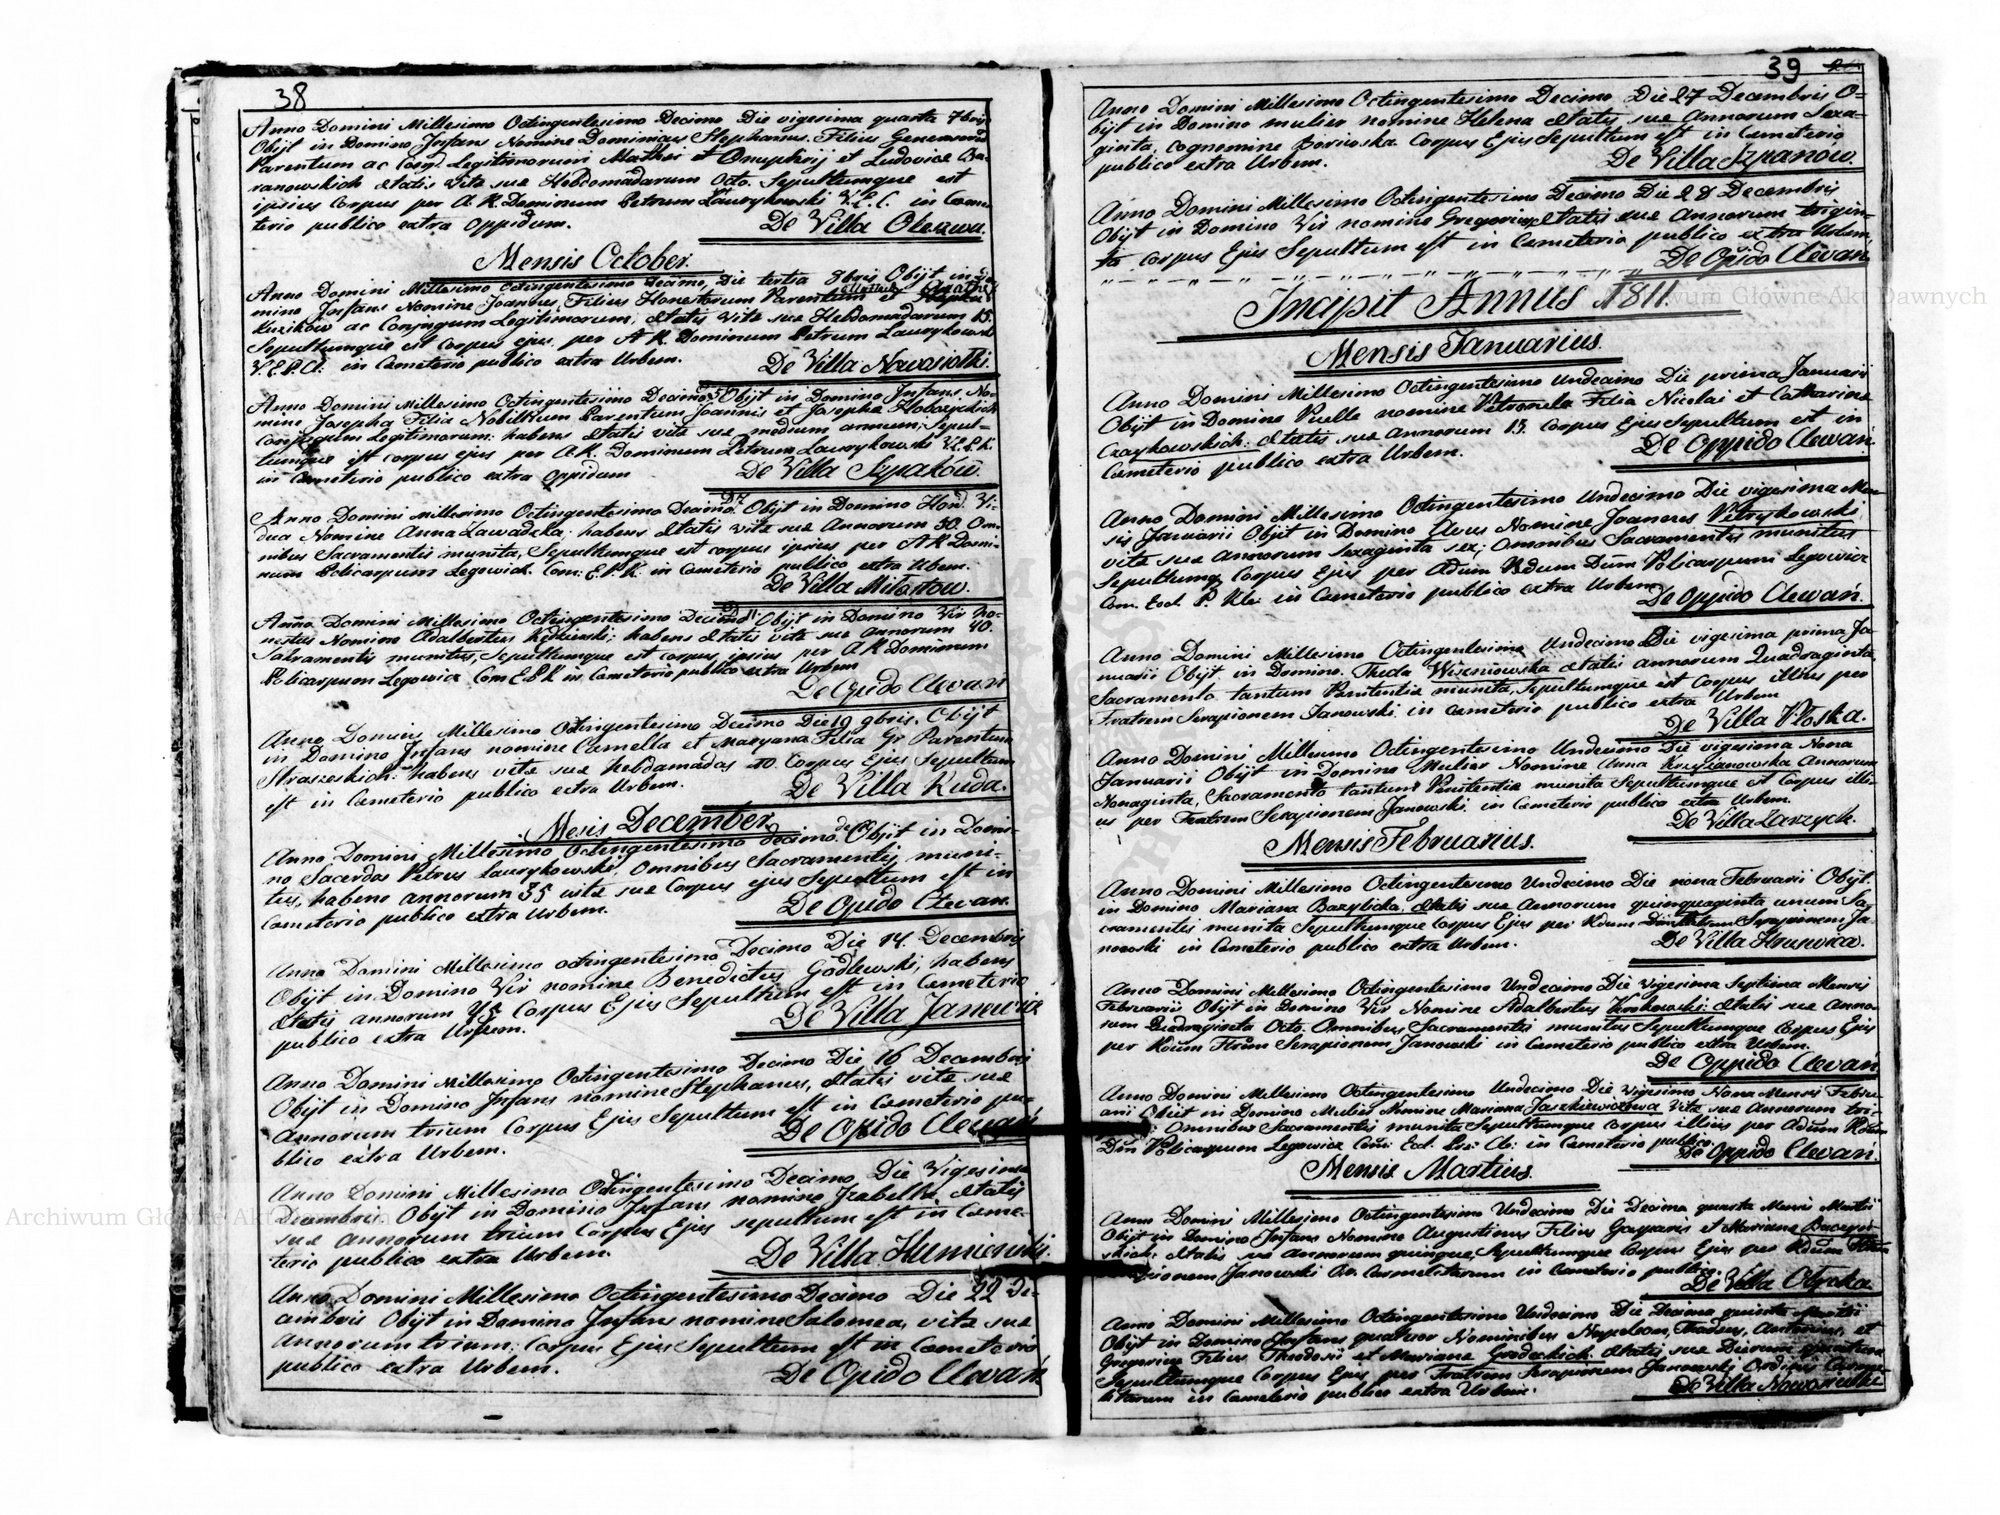 38
Anno Domini Millesimo Octingentesimo Decimo Die vigesima quarta 7bris
Obijt in Domino Infans Nomine Dominicus Stephanus Filius Generosorum
Parentum ac Conj. Legitimorum Mathei et Onuphrij et Ludovicæ Ba-
ranowskich ætatis vitæ suæ Hebdomadarum Octo. Sepultumque est
ipsius Corpus per A. R. Dominum Petrum Laurykowski V.E.C. in Came-
terio publico extra Oppidum.
De Villa Olezwa.
Mensis October.
Anno Domini Millesimo Octingentesimo Decimo, Die tertia 8bris Obijt in Do-
mino Infans Nomine Joannes, Filius Honestorum Parentum et
Kuzików ac Conjugum Legitimorum, ætatis vitæ suæ Hebdomadarum 15.
Sepultumque est corpus ejus per A R. Dominum Petrum Laurykowski
V.E.P.Cl. in Cameterio publico extra Urbem.
De Villa Nowosiołki.
Anno Domini Millesimo Octingentesimo Decimo Obijt in Domino Infans No-
mine Josepha Filia Nobilium Parentum Joannis et Josepha
Conjugum Legitimorum: habens ætatis vitæ suæ medium annum; Sepul-
tumque est corpus ejus per A.R. Dominum Petrum Laurykowski V.E.P.K.
in Cameterio publico extra Oppidum
De Villa Szpaków
Anno Domini Millesimo Octingentesimo Decimo D 7 Obijt in Domino Hon. Vi-
dua Nomine Anna Zawadzka; habens ætatis vitæ suæ Annorum 50. Om-
nibus Sacramentis munita, Sepultumque est corpus ipsius per A R Domi-
num Policarpum Legowich. Com: E.P.K. in Cameterio publico extra Urbem.
De Villa Miłostow.
Anno Domini Millesimo Octingentesimo Decimo D 11 Obijt in Domino Vir Ho-
nestus Nomine Adalbertus Kędzierski; habens ætatis vitæ suæ Annorum 40.
Sacramentis munitus, Sepultumque est corpus ipsius per A R Dominum
Policarpum Legowicz Com E.P.K in Cameterio publico extra Urbem
De Opido Clevań
Anno Domini Millesimo Octingentesimo Decimo Die 19 9bris. Obijt
in Domino Infans nomine Camella et Maryana Filia Gr Parentum
Straszeskich: habens vitæ suæ hebdamadas 10 Corpus Ejus Sepultum
est in Cameterio publico extra Urbem.
De Villa Ruda.
Mesis December.
Anno Domini Millesimo Octingentesimo decimo Obijt in Domi-
no Sacerdos Petrus Laurykowski, Omnibus Sacramentis muni-
tus, habens annorum 35 vitæ suæ Corpus ejus Sepultum est in
Cameterio publico extra Urbem.
De Opido Clevan.
Anno Domini Millesimo octingentesimo Decimo Die 14. Decembris
Obijt in Domino Vir nomine Benedictus Godlewski, habens
ætatis annorum 45 Corpus Ejus Sepultum est in Cameterio
publico extra Urbem.
De Villa Janowie
Anno Domini Millesimo Octingentesimo Decimo Die 16 Decembris
Obijt in Domino Infans nomine Stephanus, ætatis vitæ suæ
Annorum trium Corpus Ejus Sepultum est in Cameterio pu-
blico extra Urbem.
De Opido Clevań
Anno Domini Millesimo Octingentesimo Decimo Die Vigesima
Decembris Obijt in Domino Infans nomine Izabella, ætatis
suæ annorum trium Corpus Ejus sepultum est in Came-
terio publico extra Urbem.
De Villa Humieniki.
Anno Domini Millesimo Octingentesimo Decimo Die 22 De-
cembris Obijt in Domino Infans nomine Salomea, vitæ suæ
annorum trium; Corpus Ejus Sepultum est in Cameterio
publico extra Urbem.
De Opido Clevań.
39
Anno Domini Millesimo Octingentesimo Decimo Die 27 Decembris O-
bijt in Domino mulier nomine Helena ætatis suæ Annorum Sexa-
ginta, cognomine Borsoska Corpus Ejus Sepultum est in Cameterio
publico extra Urbem.
De Villa Szpanów.
Anno Domini Millesimo Octingentesimo Decimo Die 28 Decembris
Obijt in Domino Vir nomine Gregorius, ætatis suæ Annorum trigin-
ta Corpus Ejus Sepultum est in Cameterio publico extra Urbem
De Opido Clevań
Incipit Annus 1811.
Mensis Januarius.
Anno Domini Millesimo Octingentesimo Undecimo Die prima Januarii
Obijt in Domino Puella nomine Petronela Filia Nicolai et Catharinæ
Czaykowskich; ætatis suæ annorum 15. Corpus Ejus Sepultum est in
Cameterio publico extra Urbem.
De Oppido Clevań.
Anno Domini Millesimo Octingentesimo Undecimo Die vigesima Men-
sis Januarii Obijt in Domino Civis Nomine Joannes Petrykowski
vitæ suæ annorum sexaginta sex; Omnibus Sacramentis munitus
Sepultumq Corpus Ejus per Adum Rdum Dum Policarpum Legowicz
Com. Eccl. P. Kle: in Cameterio publico extra Urbem
De Oppido Clewań.
Anno Domini Millesimo Octingentesimo Undecimo Die vigesima prima Ja-
nuarii Obijt in Domino. Thecla Wiszniowska ætatis annorum Quadraginta
Sacramento tantum Pænitentiæ munita, Sepultumque est Corpus illius per
Fratrem Serapionem Janowski in Cameterio publico extra Urbem
De Villa Płoska.
Anno Domini Millesimo Octingentesimo Undecimo Die vigesima Nona
Januarii Obijt in Domino Mulier Nomine Anna Krzyżanowska Annorum
Nonaginta, Sacramento tantum Pænitentiæ munita Sepultumque est Corpus illi-
us per Fratrem Serapionem Janowski in Cameterio publico extra Urbem.
De Villa Zarzyck.
Mensis Februarius.
Anno Domini Millesimo Octingentesimo Undecimo Die nona Februarii Obijt
in Domino Mariana Bazylicka, ætatis suæ Annorum quinquaginta unum Sa-
cramentis munita Sepultumque Corpus Ejus per Rdum Serapionem Ja-
nowski in Cameterio publico extra Urbem.
De Villa Hrunwica.
Anno Domini Millesimo Octingentesimo Undecimo Die vigesima Septima Mensis
Februarii Obijt in Domino Vir Nomine Adalbertus Krakowski ætatis suæ Anno-
rum Quadraginta Octo. Omnibus Sacramentis munitus Sepultumque Corpus Ejus
per Rdum Ftrem Serapionem Janowski in Cameterio publico extra Urbem.
De Oppido Clevań
Anno Domini Millesimo Octingentesimo Undecimo Die Vigesima Nona Mensis Febru-
arii Obijt in Domino Mulier Nomine Mariana Jaszkiewiczowa Vitæ suæ Annorum tri-
Omnibus Sacramentis munita Sepultumque Corpus illius per Adum Rdum
Dum Policarpum Legowicz Com: Ecl. Par: Cle: in Cameterio publico.
De Oppido Clevań.
Mensis Martius.
Anno Domini Millesimo Octingentesimo Undecimo Die Decima quarta Mensis Martii
Obijt in Domino Infans Nomine Augustinus Filius Gasparis et Marianæ
ætatis suæ annorum quinque Sepultumque Corpus Ejus per Rdum
Janowski Or. Carmelitarum in Cameterio publico.
De Villa Olyska.
Anno Domini Millesimo Octingentesimo Undecimo Die Decima quinta Martii
Obijt in Domino Infans quatuor Nominibus Napoleon, Thadeus, Antonius, et
Gregorius Filius Theodosii et Marianæ Grodeckich ætatis suæ Dierum
Sepultumque Corpus Ejus per Fratrem Serapionem Janowski Ordinis Carme-
litarum in Cameterio publico extra Urbem.
De Villa Nowosiulki
Archiwum Główne Akt Dawnych
Archiwum Główne Akt Dawnych